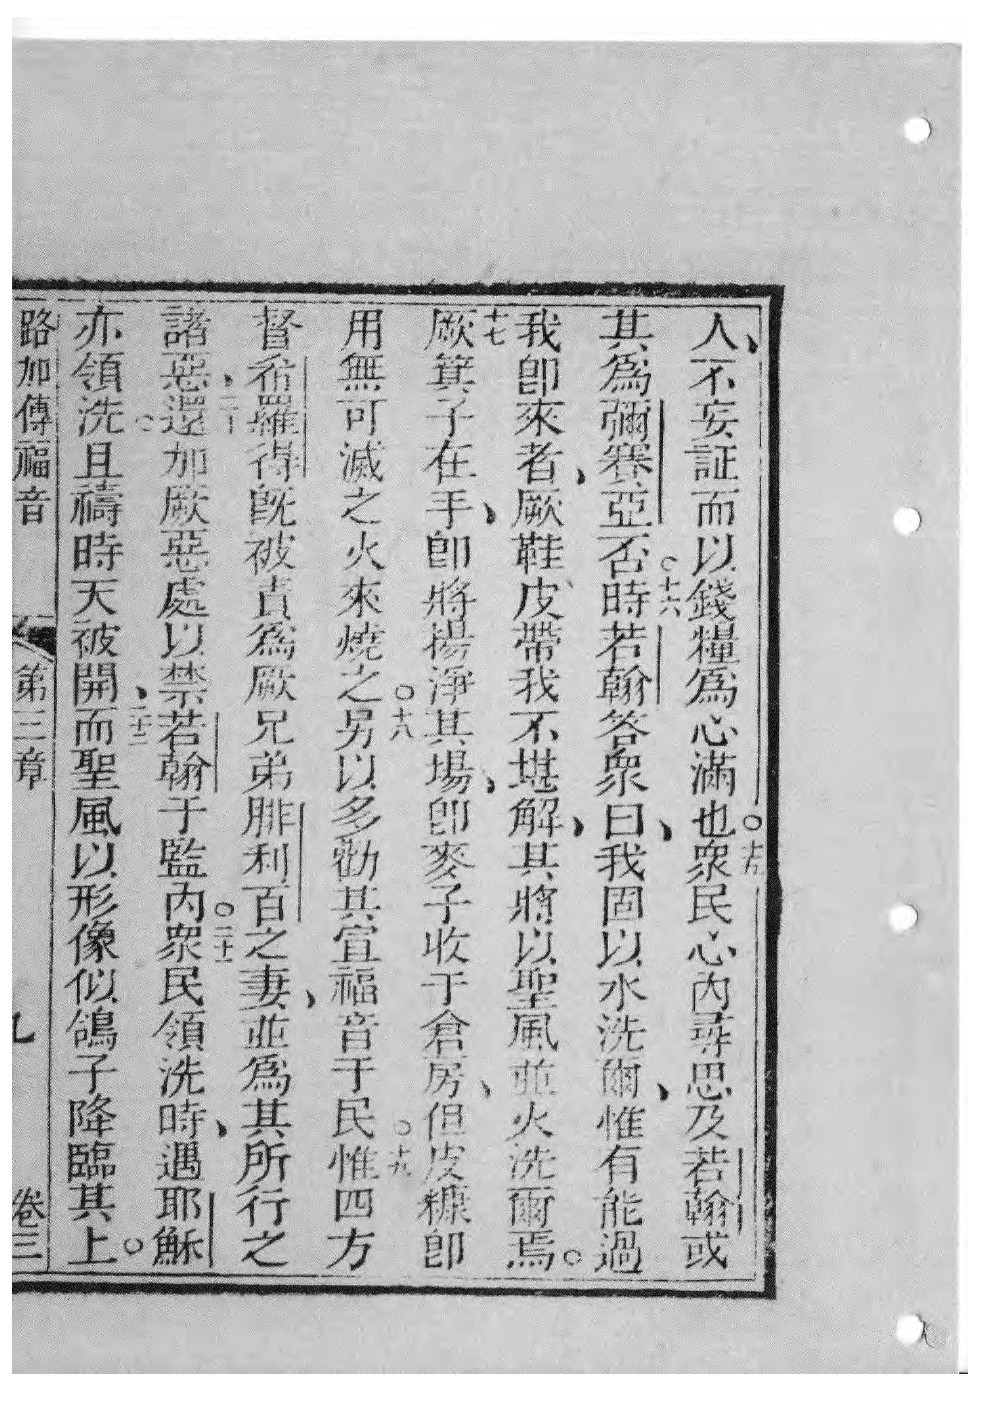 人、不妄証而以錢糧爲心滿也。十五衆民心內尋思及若翰或
其爲彌賽亞否。十六時若翰答衆曰、我固以水洗爾、惟有能過
我卽來者、厥鞋皮帶我不堪解、其將以聖風並火洗爾焉。
十七厥箕子在手、卽將揚淨其場、卽麥子收于倉房、但皮糠卽
用無可滅之火來燒之。十八另以多勸其宣福音于民。十九惟四方
督希羅得旣被責爲厥兄弟腓利百之妻、並爲其所行之
諸惡、二十還加厥惡處以禁若翰于監內。二十一衆民領洗時、遇耶穌
亦領洗且禱時天被開、二十二而聖風以形像似鴿子降臨其上。
路加傳福音 第三章 九 卷三